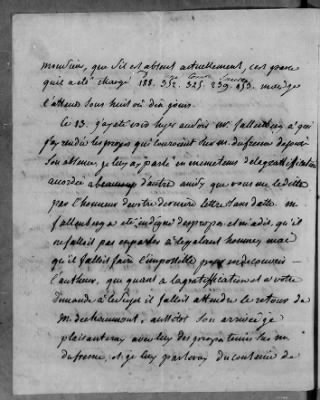 monsieur, que s'il est absent actuellement, c'est parce
qu'il a été chargé 188. 352. 325. 239. 153. mais je
l'attens sous huit ou dix jours.
Ce 13. j'ay été voir hyer au soir Mr. fallenberg à qui
j'ay rendu les propos qui couroient sur mr. dufresne depuis
son absence, je luy ay parlé en meme tems de la gratification
accordée a beaucoup d'autre ainsy que vous me le dites
par l'honneur de votre derniere lettre sans datte. M.
fallenberg a été indigné des propos et m'a dit, qu'il
ne falloit pas en parler à le galant homme, mais
qu'il falloit faire l'impossible pour en decouvrir
l'autheur, que quant a la gratification et a votre
demande à ce sujet il falloit attendre le retour de
M. dechaumont, aussitot son arrivée je
plaisanteray avec luy des propos tenus sur mr.
dufresne, et je luy parleray du contenu de